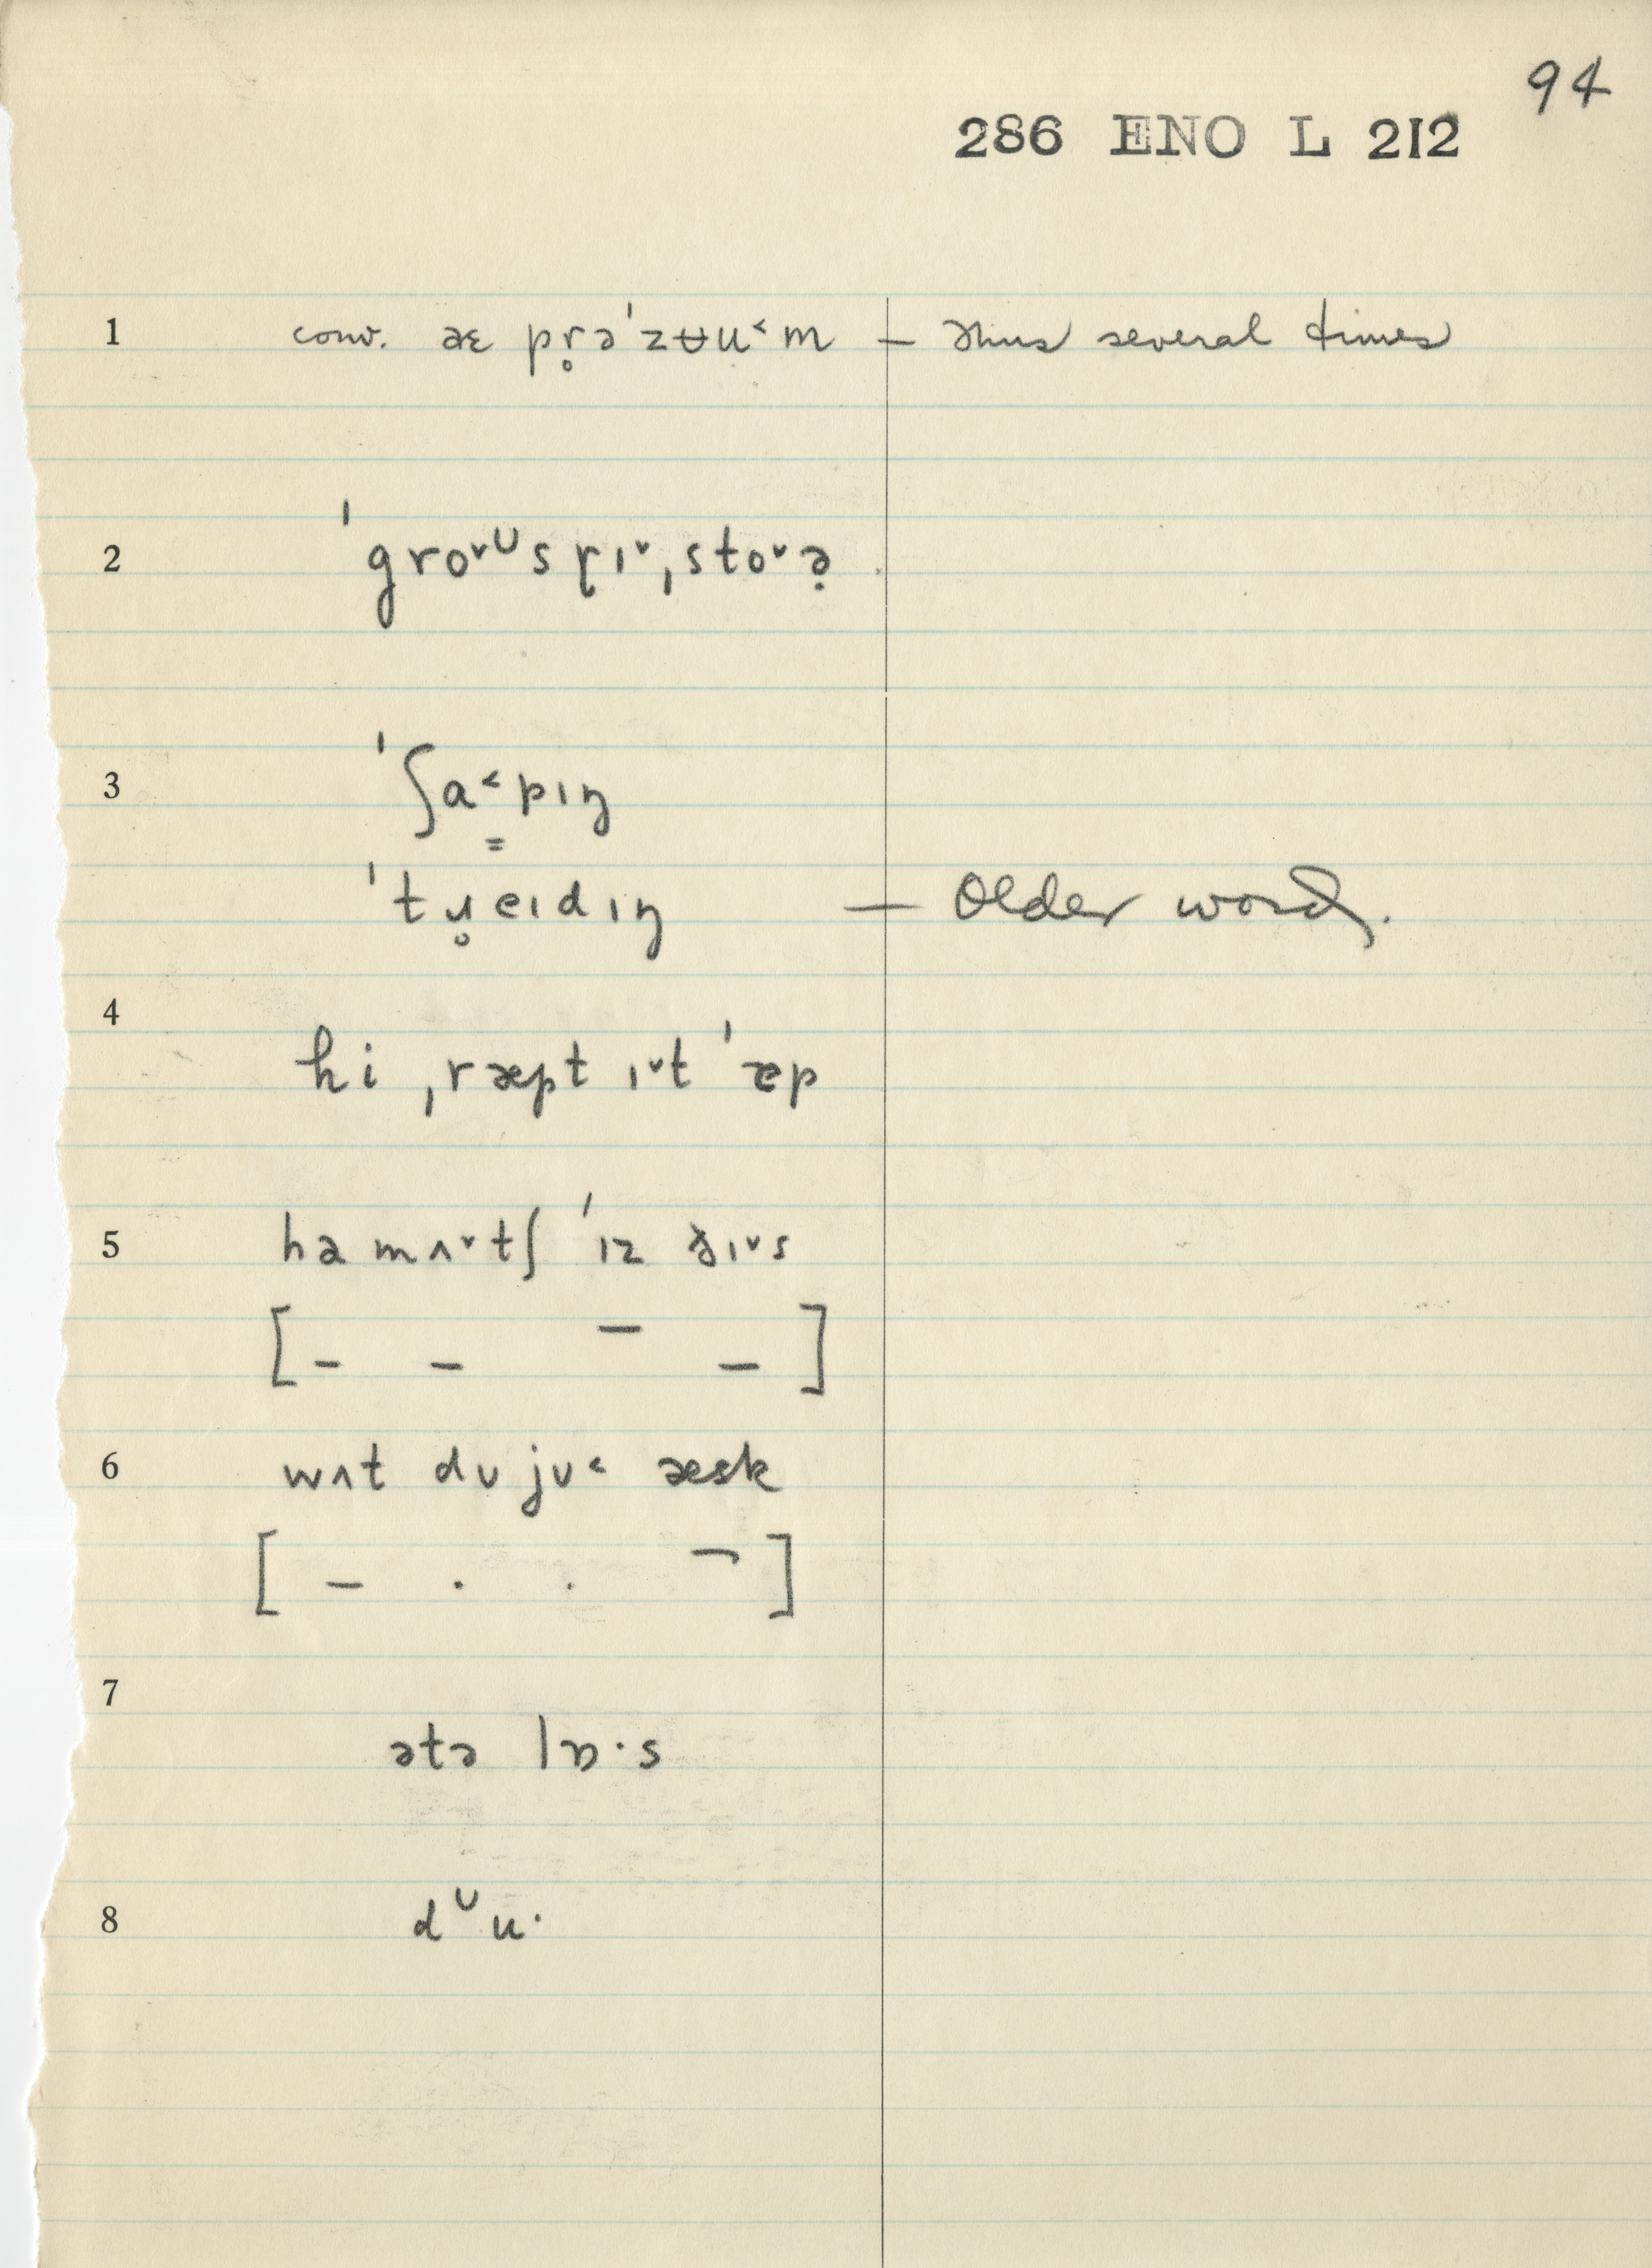 94
286 ENO L 212
1 conv. æɛ pr̥ə'zʉu˂m — Thus several times
2 'gro˅ᴜsɽɪ˅ˌsto˅ə̣
3 'ʃa˂p̳ɪŋ
'tɹ̥eɪdɪŋ — Older word.
4
hi ˌræpt ɪ˅t 'ɐp
5 hə mʌ˅tʃ 'ɪz ðɪ˅s
[ – – ¯ – ]
6 wʌt dᴜ jᴜ˂ æsk
[ – . . ¯ ]
7
ətə lɒ·s
8 dᶸu·